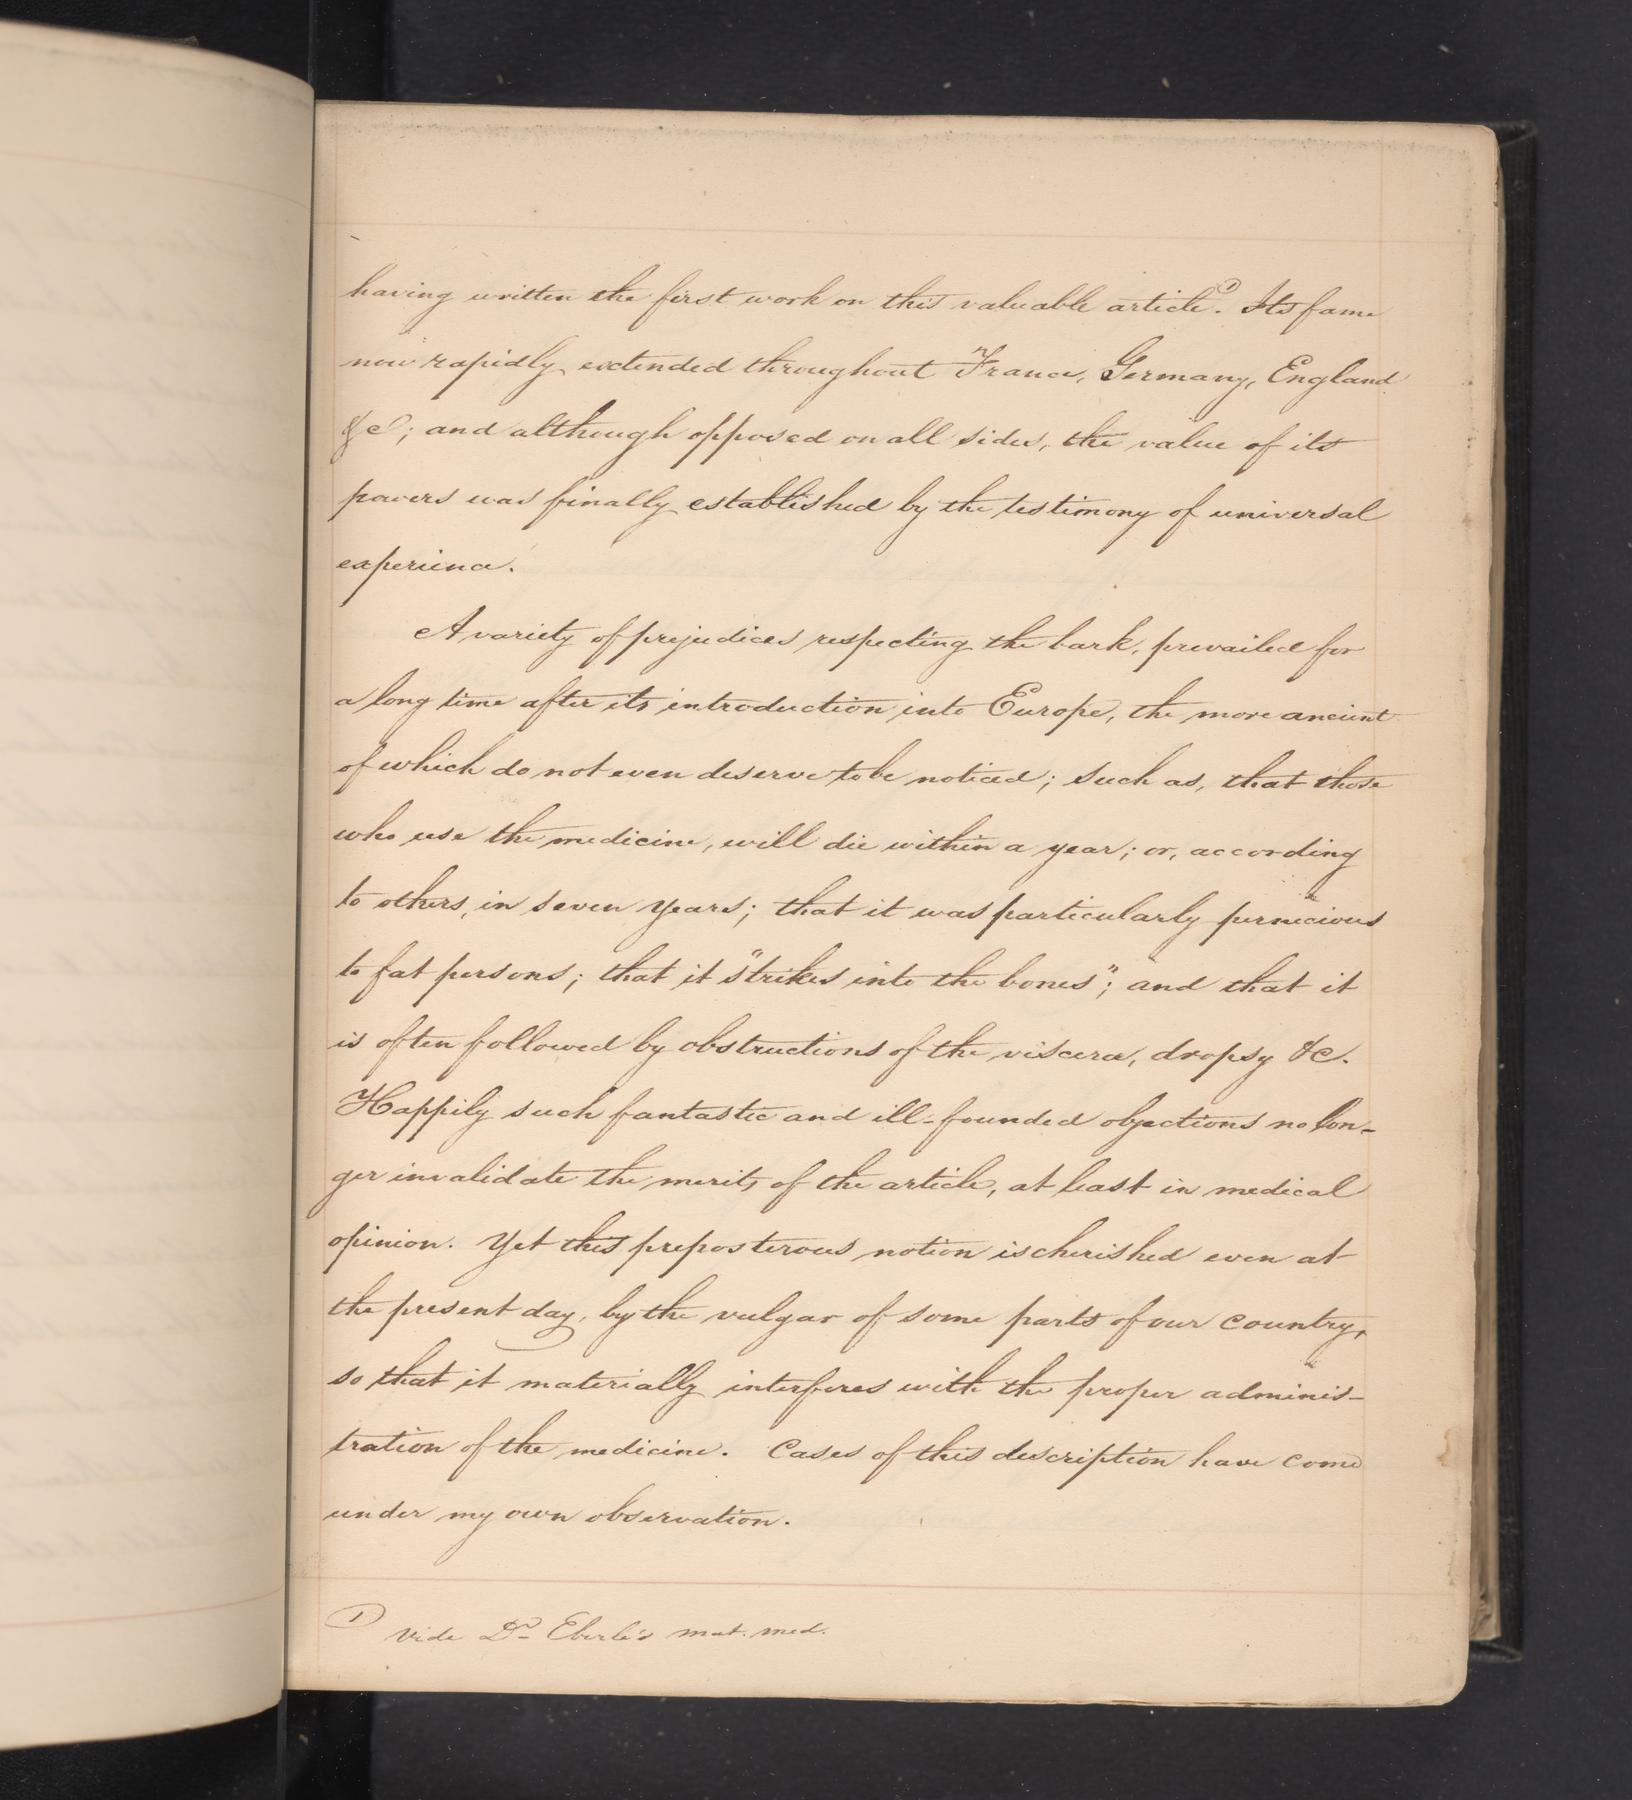 having written the first work on this valuable article.① Its fame
now rapidly extended throughout France, Germany, England
&c; and although opposed on all sides, the value of its
powers was finally established by the testimony of universal
experience.
A variety of prejudices respecting the bark, prevailed for
a long time after its introduction into Europe, the more ancient
of which do not even deserve to be noticed; such as, that those
who use the medicine, will die within a year; or, according
to others, in seven years; that it was particularly pernicious
to fat persons; that it "strikes into the bones"; and that it
is often followed by obstructions of the viscera, dropsy &c.
Happily such fantastic and ill-founded objections no lon-
ger invalidate the merits of the article, at least in medical
opinion. Yet this preposterous notion is cherished even at
the present day, by the vulgar of some parts of our country,
so that it materially interferes with the proper adminis-
tration of the medicine. Cases of this description have come
under my own observation.
① Vide Dr Eberle's mat. med.